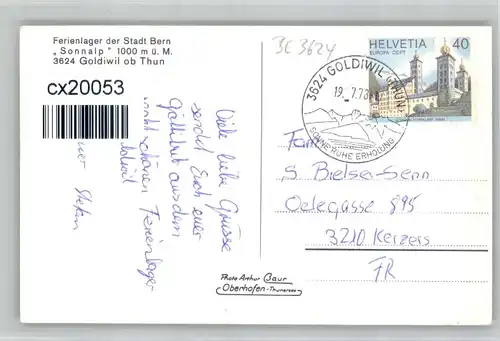 Ferienlager der Stadt Bern
„Sonnalp" 1000 m ü. M.
3624 Goldiwil ob Thun
cx20053
BE 3624
HELVETIA 40
EUROPA CEPT
3624 GOLDIWIL (THUN)
19.-7.78
SONNE RUHE ERHOLUNG
Viele liebe Grüsse
sendet Euch euer
aus dem
schönen Ferienlager
Stefan
Fam.
S Bielser-Senn
Oelegasse 895
3210 Kerzers
FR
Photo Arthur Baur
Oberhofen-Thunersee